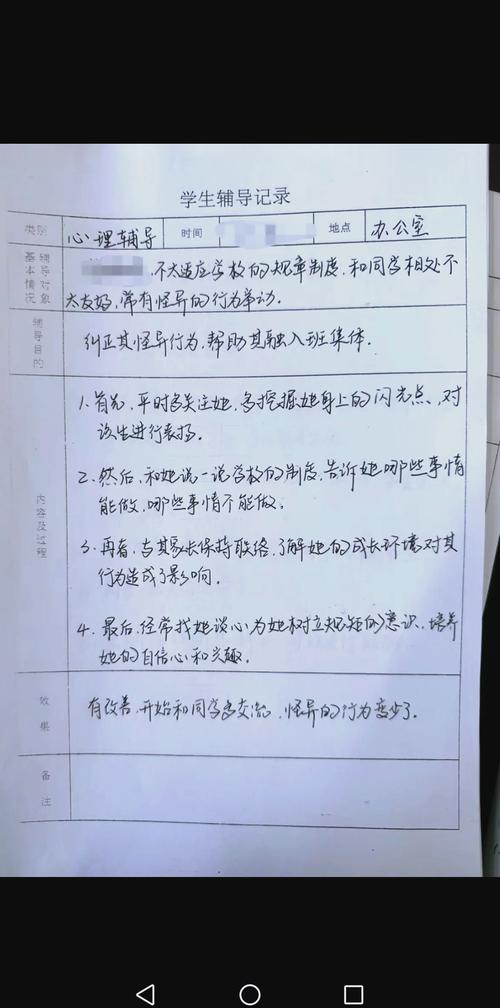 学生辅导记录
类别 心理辅导 时间 地点 办公室
辅导对象基本情况
不太适应学校的规章制度,和同学相处不
太友好,常有怪异的行为举动.
辅导目的
纠正其怪异行为,帮助其融入班集体.
内容及过程
1.首先,平时多关注她,多挖掘她身上的闪光点、对
该生进行表扬.
2.然后,和她说一说学校的制度,告诉她哪些事情
能做,哪些事情不能做。
3.再者,与其家长保持联络,了解她的成长环境对其
行为造成了影响.
4.最后,经常找她谈心为她树立规矩的意识,培养
她的自信心和兴趣.
效果
有改善,开始和同学多交流,怪异的行为变少了.
备注